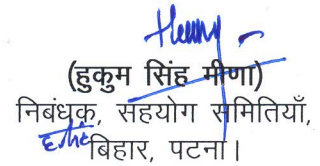 (हुकुम सिंह मीणा)
निबंधक, सहयोग समितियाँ,
बिहार, पटना।